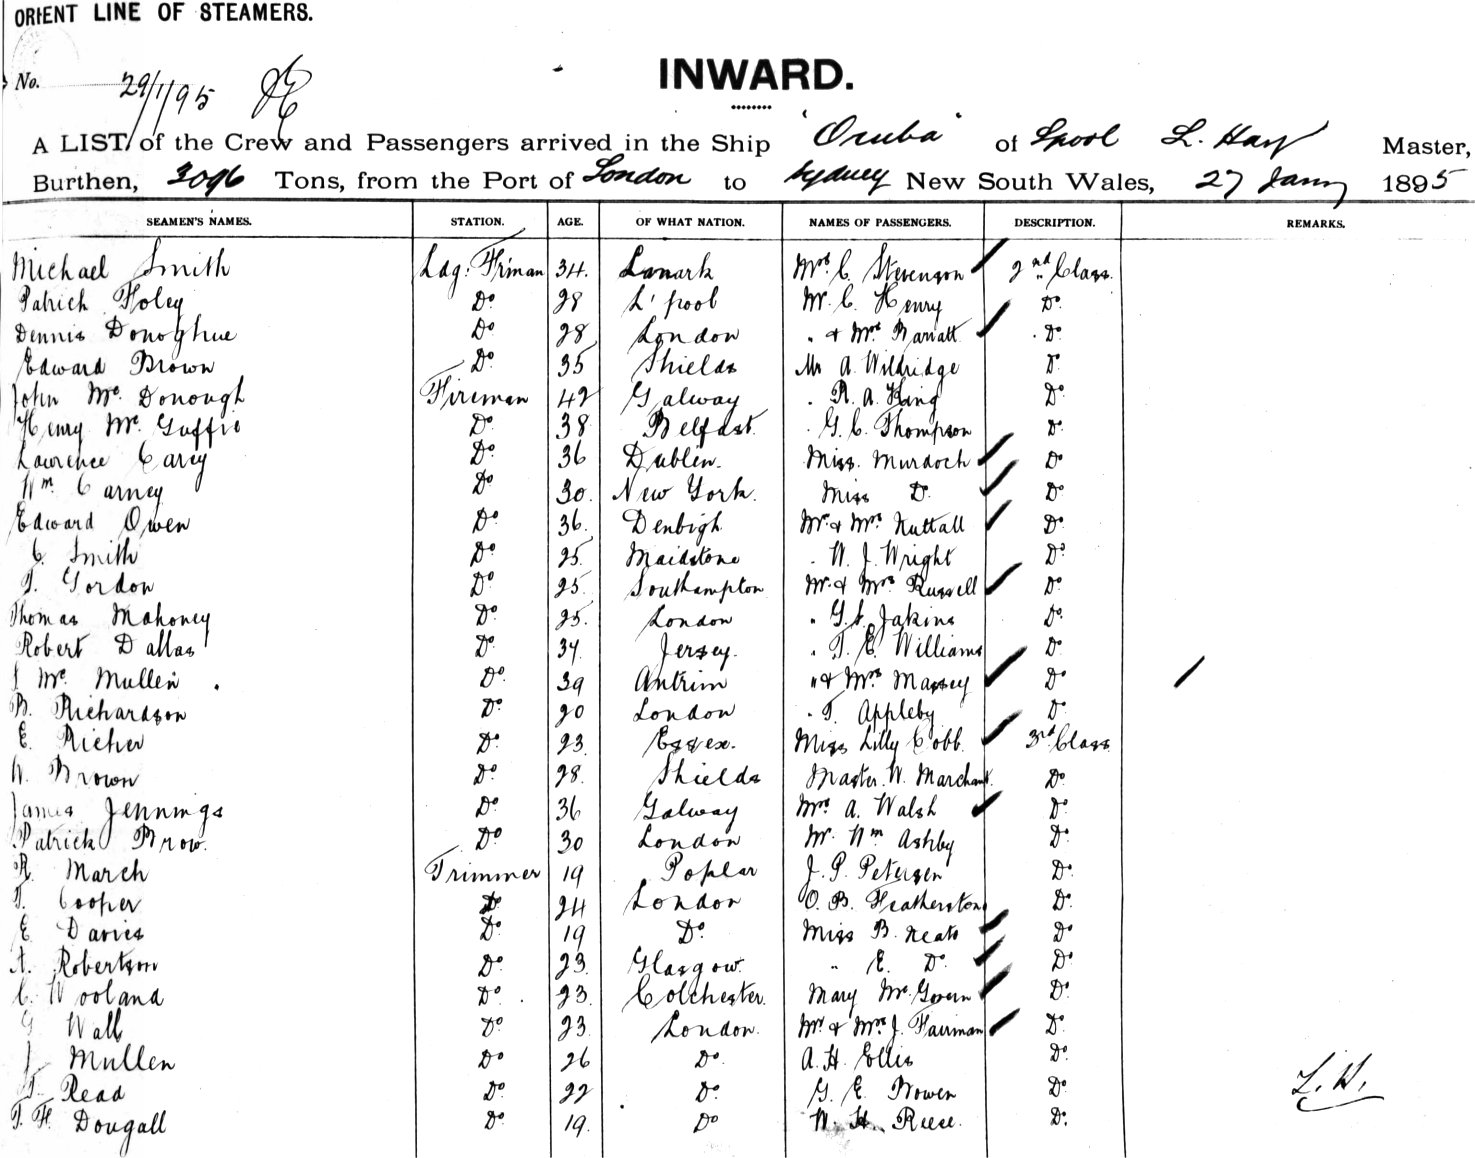 ORIENT LINE OF STEAMERS.
No. 29/1/95
INWARD.
A LIST of the Crew and Passengers arrived in the Ship 'Oruba' of Lpool L. Hay Master,
Burthen, 3096 Tons, from the Port of London to Sydney New South Wales, 27 Jany 1895
SEAMEN'S NAMES. STATION. AGE. OF WHAT NATION. NAMES OF PASSENGERS. DESCRIPTION. REMARKS.
Michael Smith Ldg. Firman 34. Lanark Mrs C. Stevenson 2nd Class
Patrick Foley Do 28 L'pool Mr. C. Henry Do
Dennis Donoghue Do 28 London " & Mrs Barratt Do
Edward Brown Do 35 Shields Mr A. Wildridge Do
John Mc Donough Fireman 42 Galway " R. A. King Do
Henry Mc Guffie Do 38 Belfast " G. C. Thompson Do
Lawrence Carey Do 36 Dublin. Miss. Murdoch Do
Wm Carney Do 30. New York. Miss Do Do
Edward Owen Do 36. Denbigh Mr & Mrs Nuttall Do
C. Smith Do 25. Maidstone " W. J. Wright Do
T. Gordon Do 25. Southampton Mr & Mrs Russell Do
Thomas Mahoney Do 25. London " G. S. Jakins Do
Robert Dallas Do 34 Jersey. " T. E. Williams Do
J Mc Mullen Do 39 Antrim " & Mrs Massey Do
B. Richardson Do 20 London " T. Appleby Do
E. Richer Do 23. Essex. Miss Lilly Cobb 3rd Class
W. Brown Do 28. Shields Master. W. Marchant Do
James Jennings Do 36 Galway Mrs A. Walsh Do
Patrick Brow. Do 30 London Mr. Wm Ashby Do
R. March Trimmer 19 Poplar J. P. Petersen Do
T. Cooper Do 24 London O. B. Featherstone Do
E. Davies Do 19 Do Miss B. Neate Do
A. Robertson Do 23. Glasgow. " E. Do Do
C. Wooland Do 23. Colchester. Mary McGovern Do
G. Wall Do 23. London. Mr & Mrs J. Fairman Do
J. Mullen Do 26 Do. A. H. Ellis Do
T. Read Do 22 Do. G. E. Bowen Do
T. H. Dougall Do 19. Do W. H. Reese. Do
L. H.